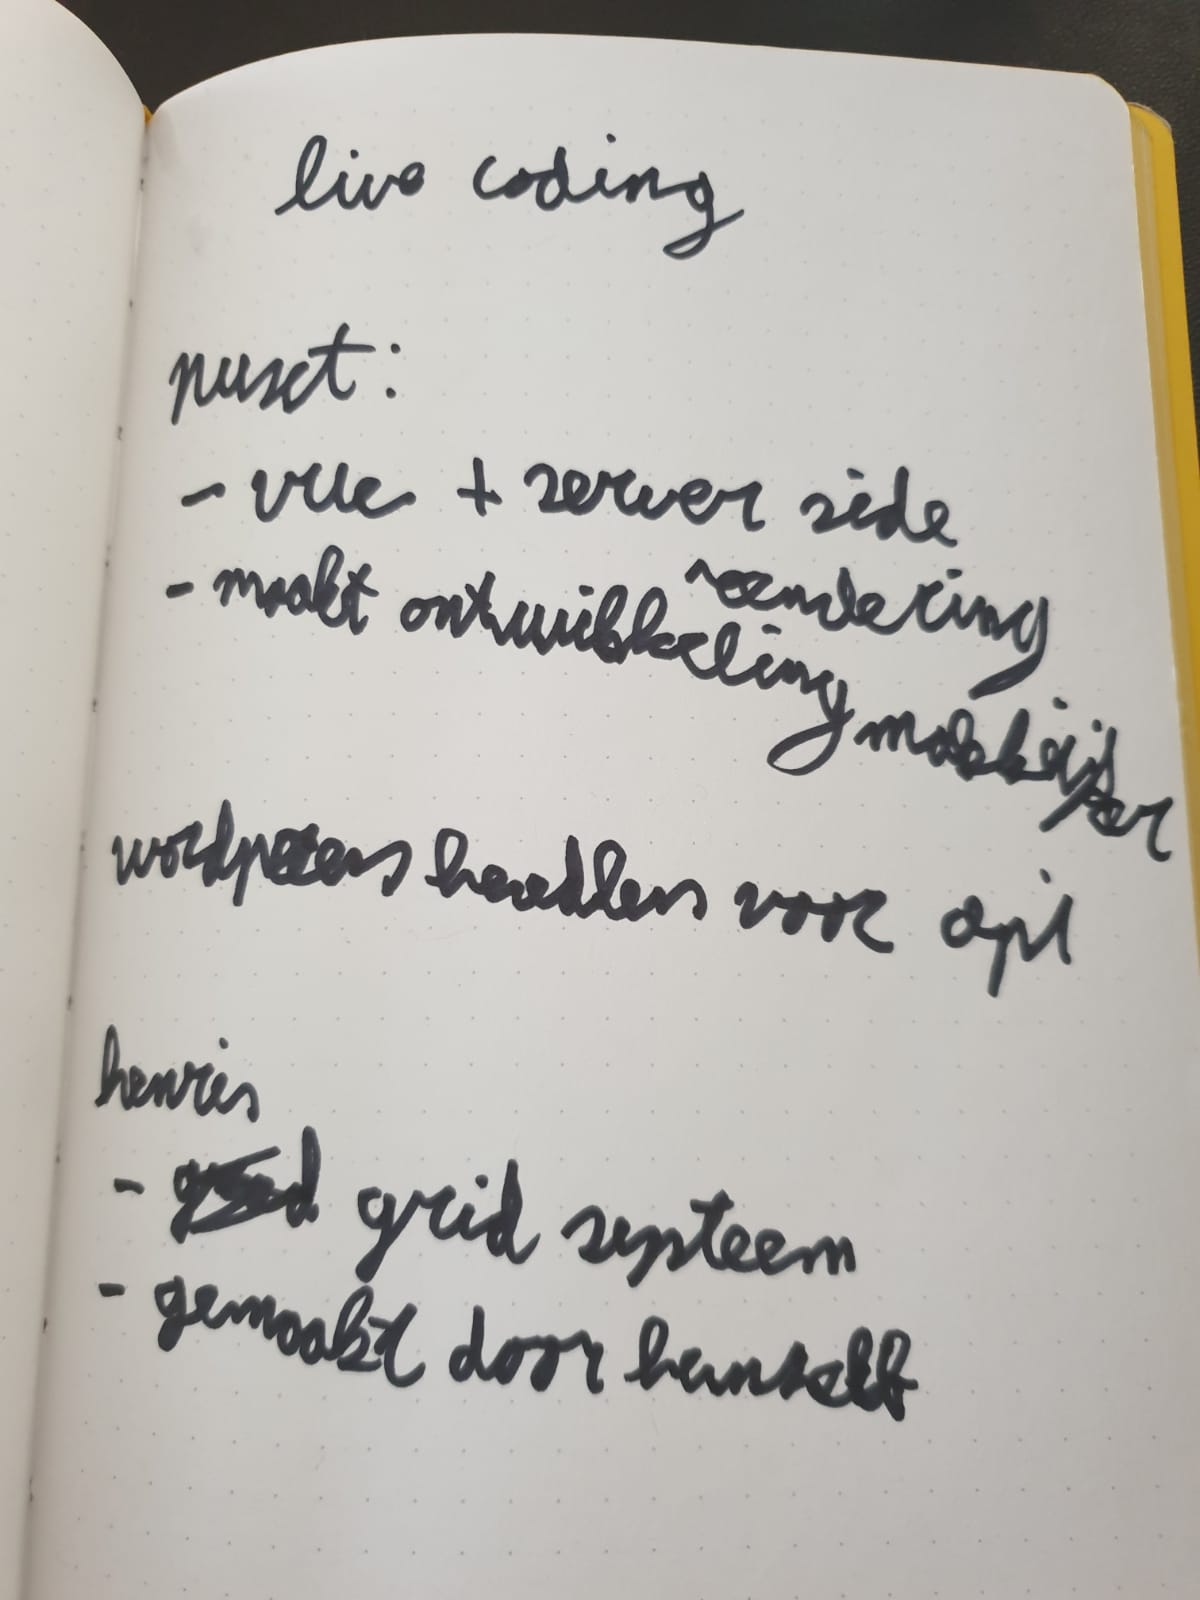 live coding
nuxt:
- vue + server side
rendering
- maakt ontwikkeling makkelijker
wordpress headless voor api
henris
- grid systeem
- gemaakt door hemzelf